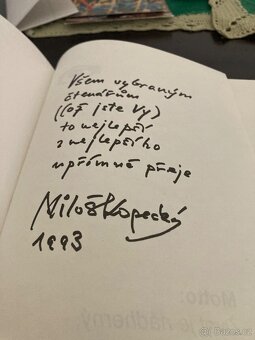 Všem vybraným
čtenářům
(což jste Vy)
to nejlepší
z nejlepšího
upřímně přeje
Miloš Kopecký
1993
Motto:
je nádherný
Bazos.cz